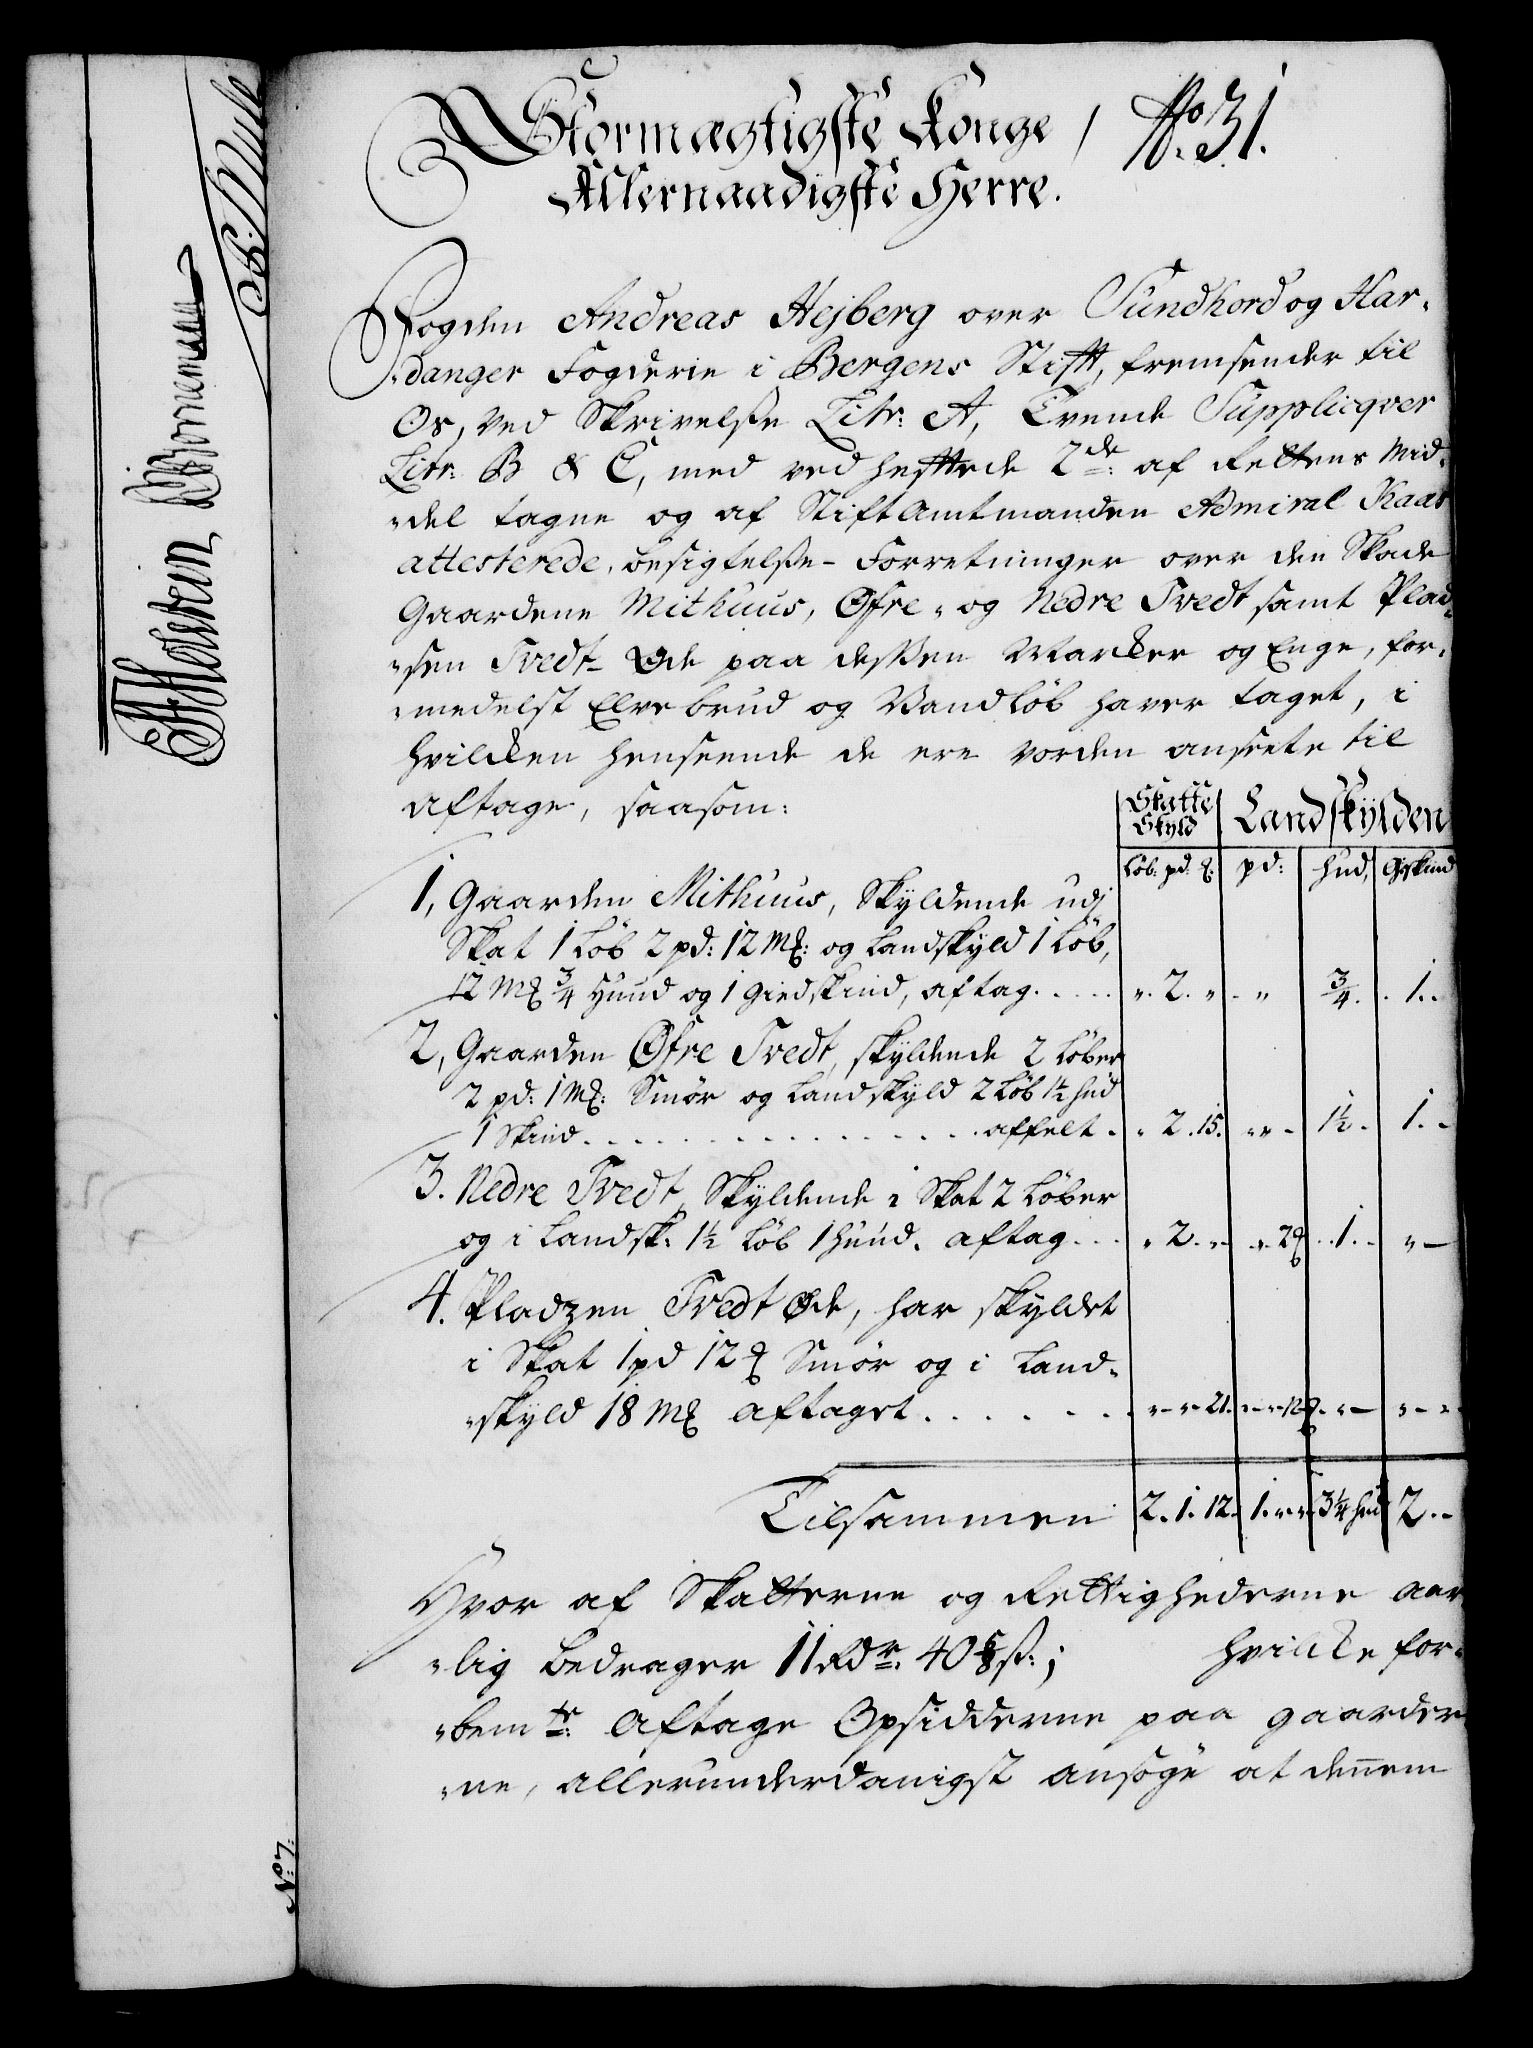 Stormægtigste Konge / No. 31.
Allernaadigste Herre.
Fogden Andreas Hejberg over Sundhord og Har-
danger Fogderie i Bergens Stift, fremsender til
Os, ved Skrivelse Litr: A, Tvende Supplicqver
Litr: B & C, med ved heftede 2de: af Rettens Mid-
del tagne og af Stiftamtmanden Admiral Kaas
attesterede, besigtelse-Forretninger over den Skade
Gaardene Mithuus, Øfre- og Nedre Tvedt samt Plad-
sen Tvedt Øde paa dessen Marker og Enge, for-
medelst Elvebrud og Vandløb haver taget, i
hvilcken henseende de ere vorden ansæte til
aftage, saasom:
Skatte Skyld Landskylden
Løb: pd. ℔: pd: hud, Gskind
1, Gaarden Mithuus, Skyldende udj
Skat 1 Løb 2 pd: 12 M℔: og Landskyld 1 Løb,
12 M℔ 3/4 Huud og 1 Giedskind, aftag. . . . . „. 2. „ . „ 3/4. . 1. .
2, Gaarden Øfre Tvedt, skyldende 2 Løber
2 pd: 1 M℔: Smør og Landskyld 2 Løb 1½ hud
1 Skind. . . . . . . . . . affelt . „ 2. 15. „ „ - 1½. 1. -
3. Nedre Tvedt, Skyldende i Skat 2 Løber
og i Landsk: 1½ Løb 1 huud. aftag. . . „ 2. „- „. 2℔ . 1. - „ -
4. Pladzen Tvedt Øde, har skyldet
i Skat 1 pd 12 ℔ Smør og i Land-
skyld 18 M℔ aftaget. . . . . . „- „- 21. „- „- 12℔. „- „- -
Tilsammen 2. 1. 12. 1. „ „ 3¼ hud 2. -
Hvor af Skatterne og Rettighederne aar-
lig bedrager 11 Rdr. 40 5/8 ß: ; hvilcke for-
bemte: Aftage Opsidderne paa gaarder-
ne, allerunderdanigst ansøge at dennem
Bornemann
No 7: